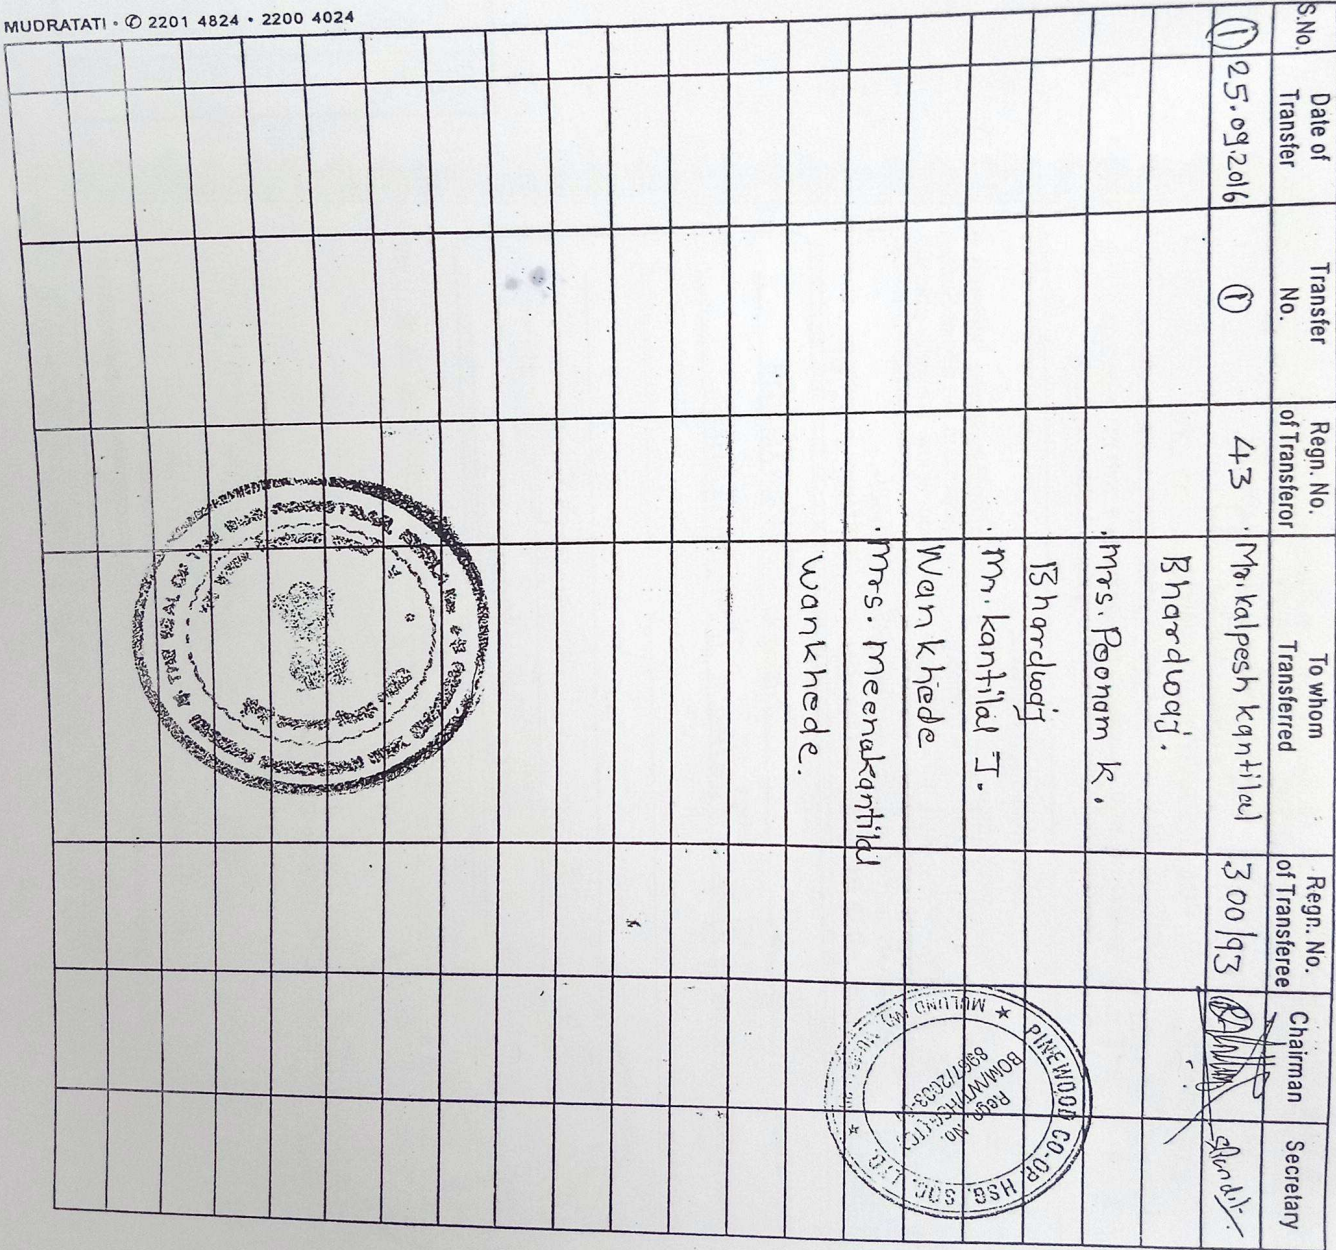 MUDRATATI • ✆ 2201 4824 • 2200 4024
S.No. Date of Transfer Transfer No. Regn. No. of Transferor To whom Transferred Regn. No. of Transferee Chairman Secretary
① 25.09.2016 ① 43 Mr. Kalpesh Kantilal 300/93
Bhardwaj.
Mrs. Poonam K.
Bhardwaj
Mr. Kantilal J.
Wankhede
Mrs. Meenakantilal
Wankhede.
PINEWOOD CO-OP HSG. SOC. LTD.
MULUND (W)
Regn. No.